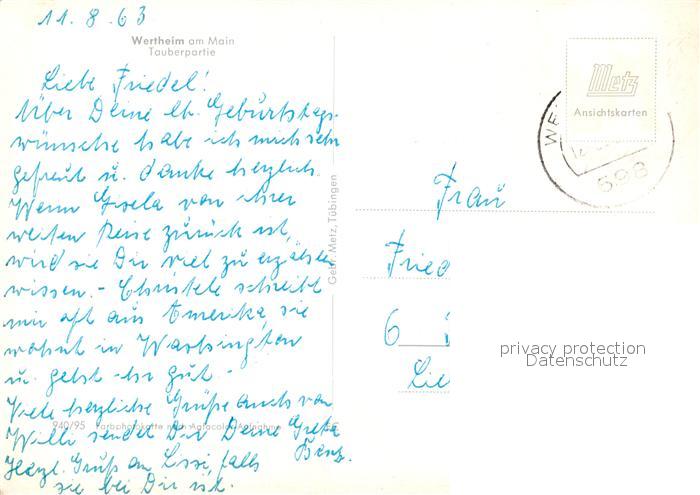 11.8.63
Wertheim am Main
Tauberpartie
Liebe Friedel!
Über Deine lb. Geburtstags-
wünsche habe ich mich sehr
gefreut u. danke herzlich.
Wenn Gisela von ihrer
weiten Reise zurück ist,
wird sie Dir viel zu erzählen
wissen. - Christele schreibt
mir oft aus Amerika, sie
wohnt in Washington
u. geht ihr gut -
Viele herzliche Grüße auch von
Willi sendet Dir Deine Greta
Herzl. Gruß an Lissi, falls
sie bei Dir ist.
940/95 Farbphotokarte nach Agfacolor-Aufnahme
Gebr. Metz, Tübingen
Metz
Ansichtskarten
WE
698
Frau
Fried
6
Lie
privacy protection
Datenschutz